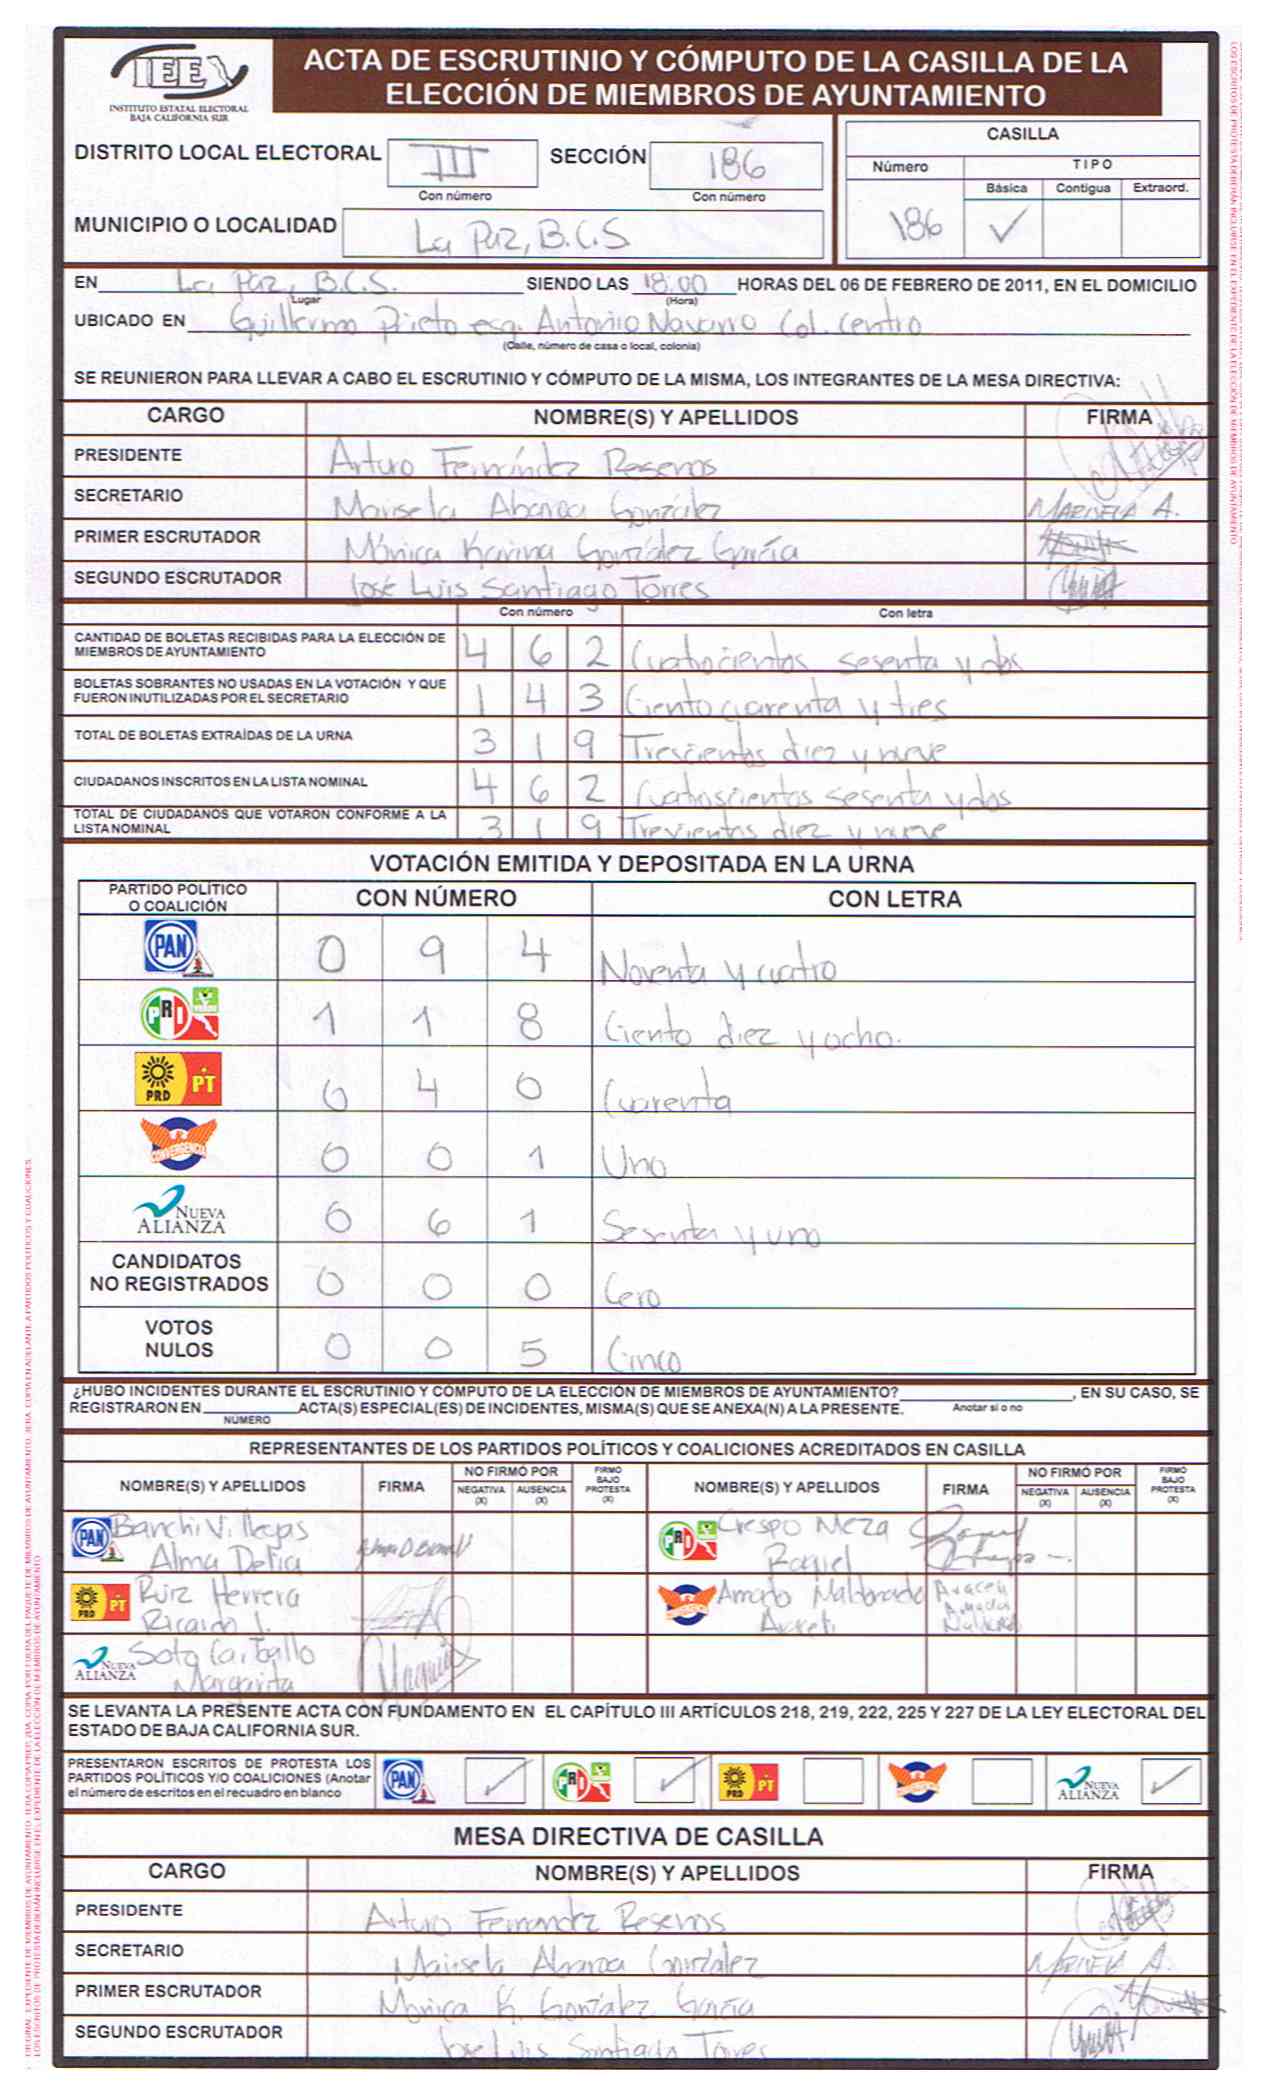 IEE
INSTITUTO ESTATAL ELECTORAL
BAJA CALIFORNIA SUR
ACTA DE ESCRUTINIO Y CÓMPUTO DE LA CASILLA DE LA
ELECCIÓN DE MIEMBROS DE AYUNTAMIENTO
DISTRITO LOCAL ELECTORAL III SECCIÓN 186
Con número Con número
MUNICIPIO O LOCALIDAD La Paz, B.C.S
CASILLA
Número TIPO
Básica Contigua Extraord.
186 ✓
EN La Paz, B.C.S. SIENDO LAS 18:00 HORAS DEL 06 DE FEBRERO DE 2011, EN EL DOMICILIO
Lugar (Hora)
UBICADO EN Guillermo Prieto esq. Antonio Navarro Col. Centro
(Calle, número de casa o local, colonia)
SE REUNIERON PARA LLEVAR A CABO EL ESCRUTINIO Y CÓMPUTO DE LA MISMA, LOS INTEGRANTES DE LA MESA DIRECTIVA:
CARGO NOMBRE(S) Y APELLIDOS FIRMA
PRESIDENTE Arturo Fernández Reseros
SECRETARIO Marisela Abaroa González MARISELA A.
PRIMER ESCRUTADOR Mónica Karina González García
SEGUNDO ESCRUTADOR José Luis Santiago Torres
Con número Con letra
CANTIDAD DE BOLETAS RECIBIDAS PARA LA ELECCIÓN DE
MIEMBROS DE AYUNTAMIENTO 4 6 2 Cuatrocientos sesenta y dos
BOLETAS SOBRANTES NO USADAS EN LA VOTACIÓN Y QUE
FUERON INUTILIZADAS POR EL SECRETARIO 1 4 3 Ciento cuarenta y tres
TOTAL DE BOLETAS EXTRAÍDAS DE LA URNA 3 1 9 Trescientos diez y nueve
CIUDADANOS INSCRITOS EN LA LISTA NOMINAL 4 6 2 Cuatroscientos sesenta y dos
TOTAL DE CIUDADANOS QUE VOTARON CONFORME A LA
LISTA NOMINAL 3 1 9 Trescientos diez y nueve
VOTACIÓN EMITIDA Y DEPOSITADA EN LA URNA
PARTIDO POLÍTICO
O COALICIÓN CON NÚMERO CON LETRA
PAN 0 9 4 Noventa y cuatro
PRI VERDE 1 1 8 Ciento diez y ocho.
PRD PT 0 4 0 Cuarenta
CONVERGENCIA 0 0 1 Uno
NUEVA ALIANZA 0 6 1 Sesenta y uno
CANDIDATOS
NO REGISTRADOS 0 0 0 Cero
VOTOS
NULOS 0 0 5 Cinco
¿HUBO INCIDENTES DURANTE EL ESCRUTINIO Y CÓMPUTO DE LA ELECCIÓN DE MIEMBROS DE AYUNTAMIENTO? , EN SU CASO, SE
REGISTRARON EN ACTA(S) ESPECIAL(ES) DE INCIDENTES, MISMA(S) QUE SE ANEXA(N) A LA PRESENTE. Anotar si o no
NÚMERO
REPRESENTANTES DE LOS PARTIDOS POLÍTICOS Y COALICIONES ACREDITADOS EN CASILLA
NOMBRE(S) Y APELLIDOS FIRMA NO FIRMÓ POR NEGATIVA (X) AUSENCIA (X) FIRMO BAJO PROTESTA (X) NOMBRE(S) Y APELLIDOS FIRMA NO FIRMÓ POR NEGATIVA (X) AUSENCIA (X) FIRMO BAJO PROTESTA (X)
PAN Villegas PRI Crespo Meza
Alma Delia Raquel
PRD PT Ruiz Herrera CONVERGENCIA Maldonado
Ricardo J.
NUEVA ALIANZA Soto Carballo
Margarita
SE LEVANTA LA PRESENTE ACTA CON FUNDAMENTO EN EL CAPÍTULO III ARTÍCULOS 218, 219, 222, 225 Y 227 DE LA LEY ELECTORAL DEL
ESTADO DE BAJA CALIFORNIA SUR.
PRESENTARON ESCRITOS DE PROTESTA LOS
PARTIDOS POLÍTICOS Y/O COALICIONES (Anotar
el número de escritos en el recuadro en blanco
PAN ✓ PRI ✓ PRD PT CONVERGENCIA NUEVA ALIANZA ✓
MESA DIRECTIVA DE CASILLA
CARGO NOMBRE(S) Y APELLIDOS FIRMA
PRESIDENTE Arturo Fernandez Reseros
SECRETARIO Marisela Abaroa González MARISELA A.
PRIMER ESCRUTADOR Monica K. González García
SEGUNDO ESCRUTADOR Jose Luis Santiago Torres